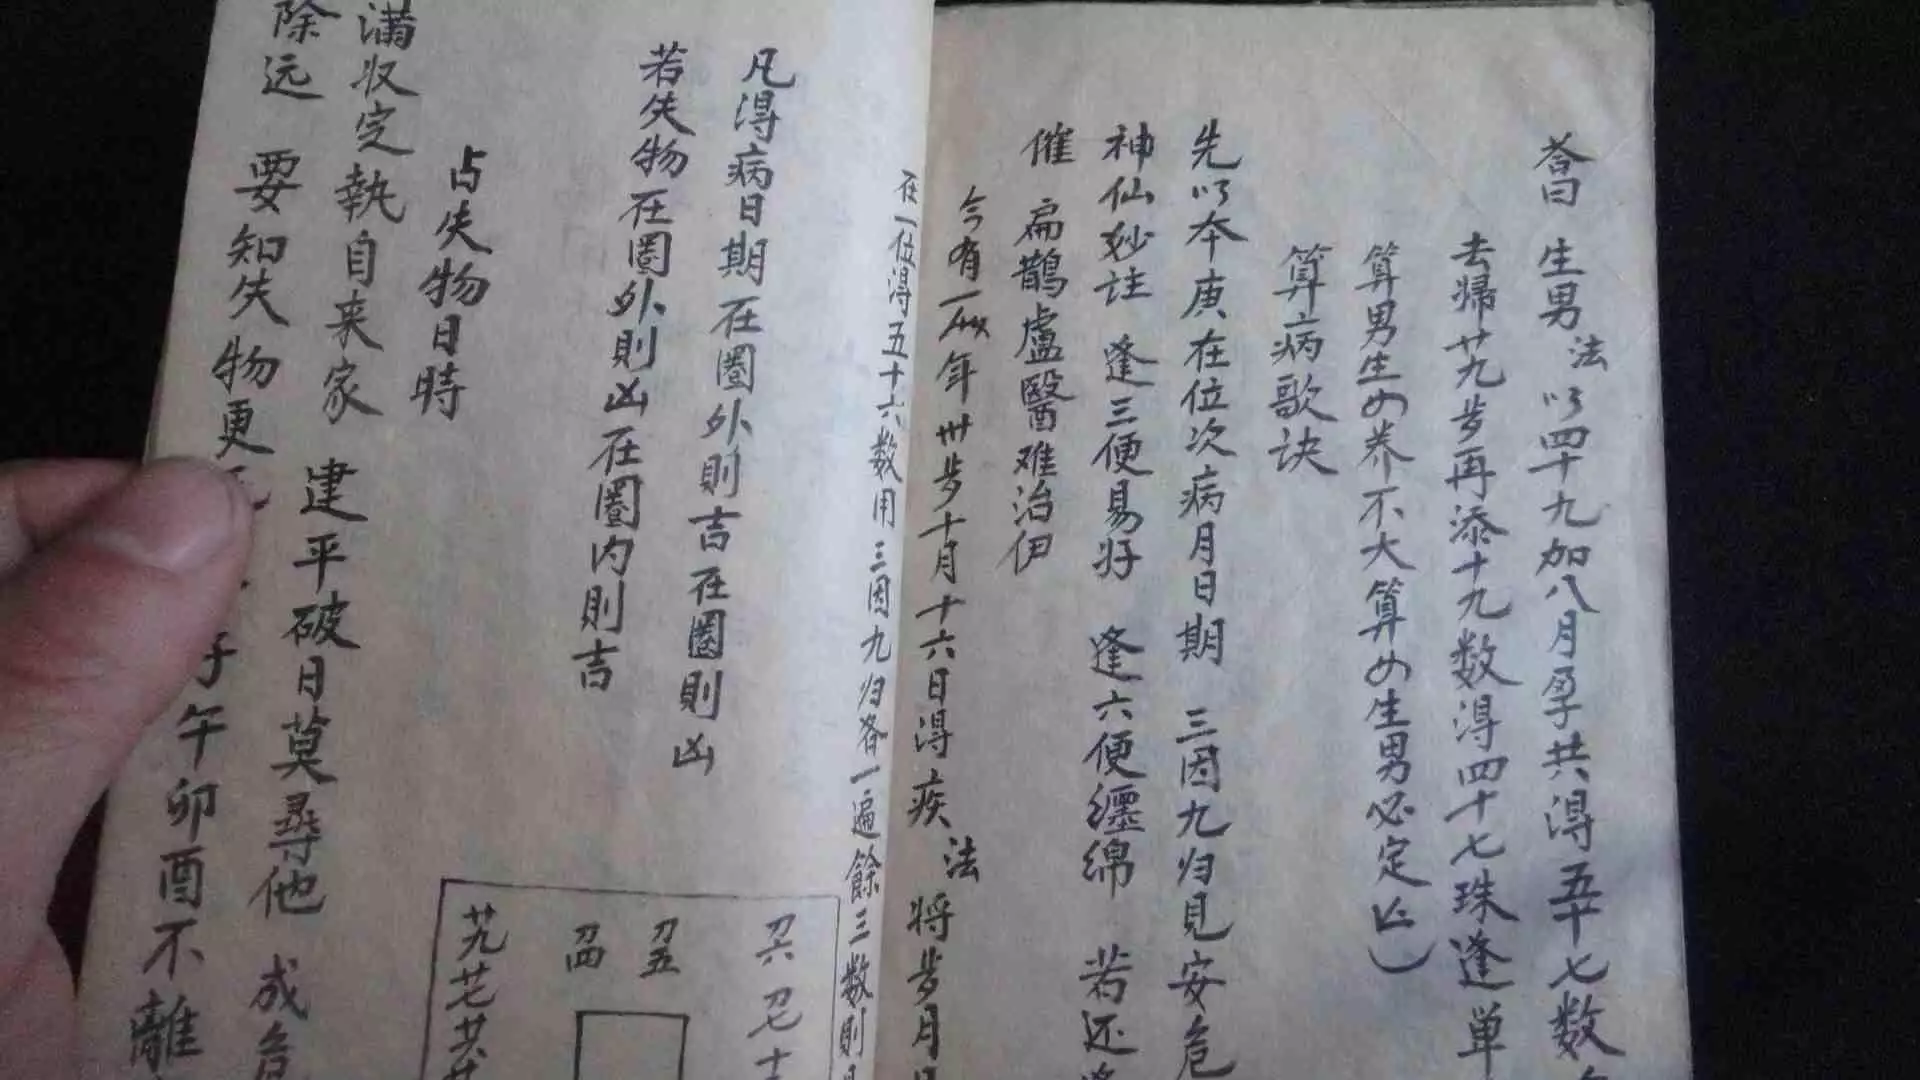 荅曰 生男法 以四十九加八月孕共得五十七数
去歸廿九岁再添十九数得四十七珠逢单
算男生女养不大算女生男必定
算病歌诀
先以本庚在位次病月日期 三因九归見安危
神仙妙註 逢三便易好 逢六便纒绵 若还
催 扁鹊盧醫难治伊
今有一 年卅岁十月十六日得疾 法 将岁月日
在一位得五十六数用三因九归各一遍餘三数則
凡得病日期在圈外則吉在圈則凶
若失物在圈外則凶在圈内則吉
占失物日時
满收定執自来家 建平破日莫尋他 成危
除远 要知失物更 子午卯酉不離
刀六 刀七 十
刀五
刀四
廿九 廿七 廿六